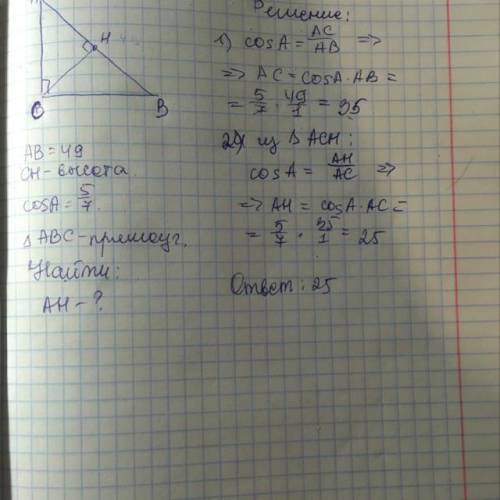 H
C
B
AB = 49
CH - высота
cosA = 5/7.
△ABC - прямоуг.
Найти:
AH - ?
Решение:
1) cosA = AC/AB =>
=> AC = cosA · AB =
= 5/7 · 49/1 = 35
2) из △ ACH:
cosA = AH/AC =>
=> AH = cosA · AC =
= 5/7 · 35/1 = 25
Ответ: 25